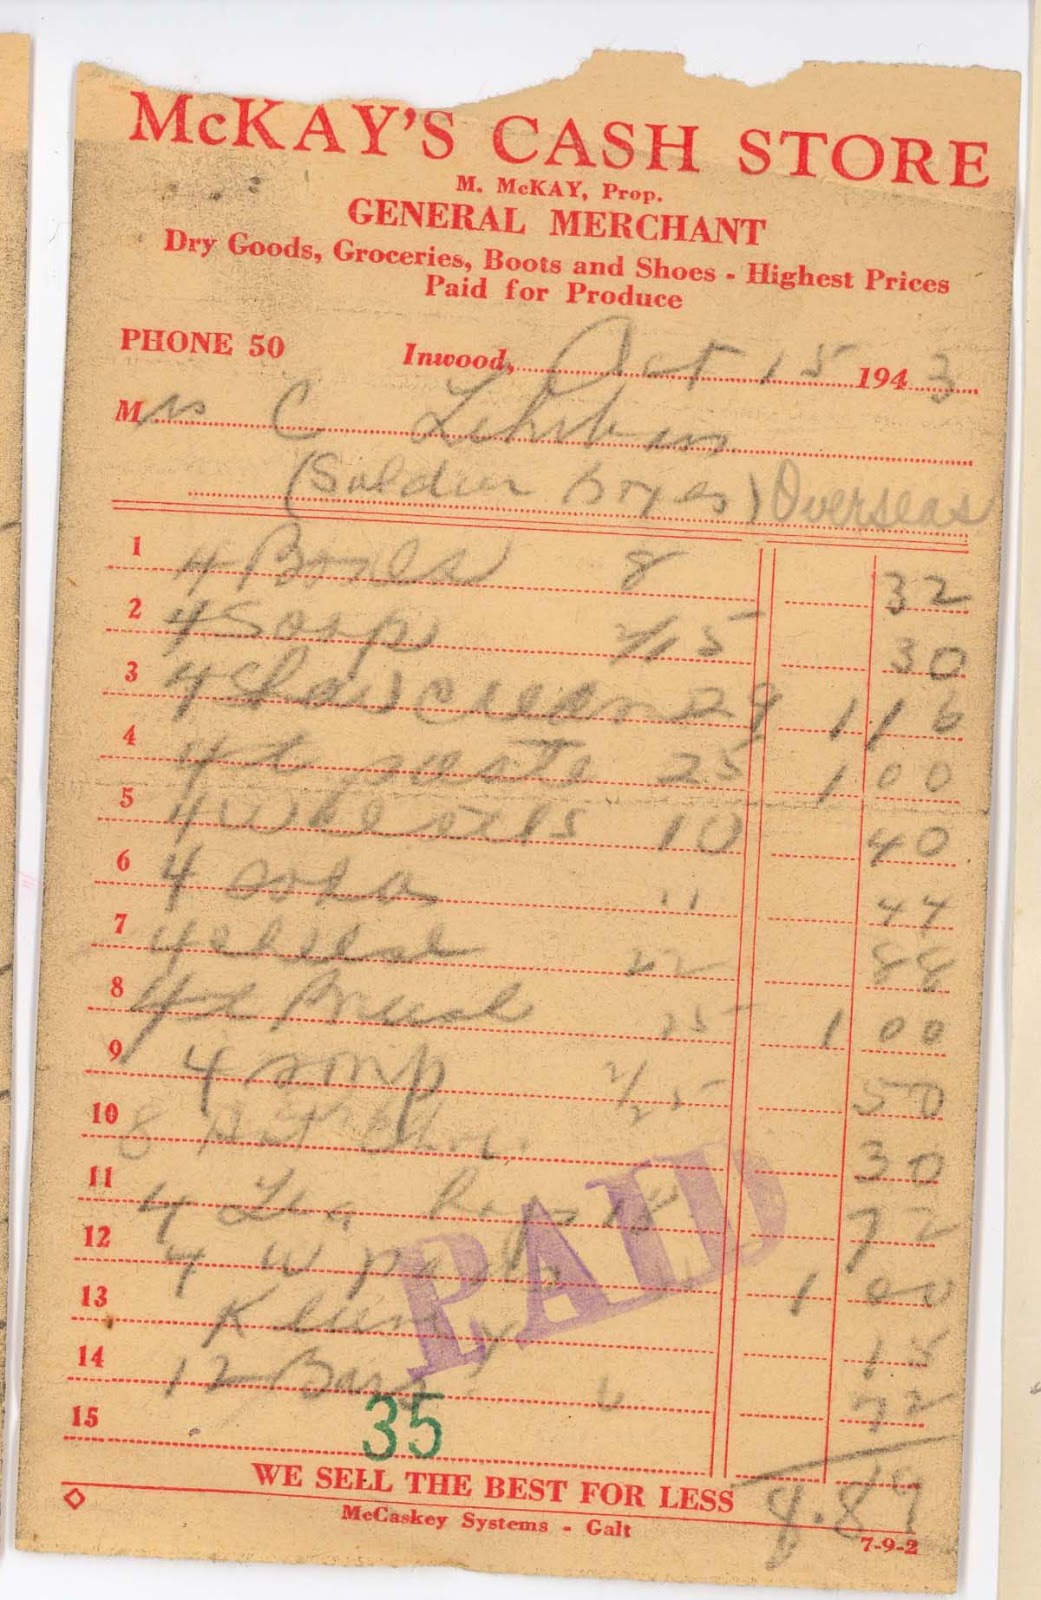 McKAY'S CASH STORE
M. McKAY, Prop.
GENERAL MERCHANT
Dry Goods, Groceries, Boots and Shoes - Highest Prices
Paid for Produce
PHONE 50 Inwood, Oct 15 1943
Mrs C
(Soldier boxes) Overseas
1 4 Boxes 8 32
2 4 Soap 2/15 30
3 4 Shav cream 29 1 16
4 4 t paste 25 1 00
5 4 10 40
6 4 11 44
7 4 cheese 22 88
8 4 t Brush 25 1 00
9 4 soup 2/25 50
10 8 Hot Choc. 30
11 4 Tea 72
12 4 W 1 00
13 15
14 12 Bars 6 72
15
PAID
35
WE SELL THE BEST FOR LESS 8.89
McCaskey Systems - Galt
7-9-2